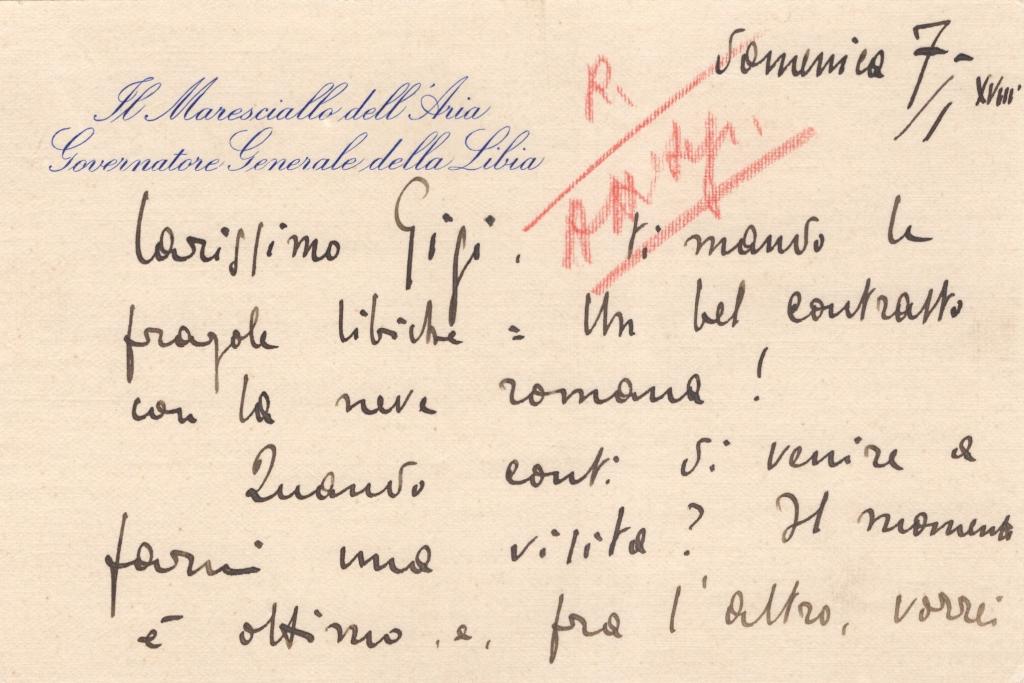 domenica 7/1 - XVIII
Il Maresciallo dell'Aria
Governatore Generale della Libia
R.
Carissimo Gigi, ti mando le
fragole libiche = Un bel contrasto
con la neve romana!
Quando conti di venire a
farmi una visita? Il momento
è ottimo e, fra l'altro, vorrei